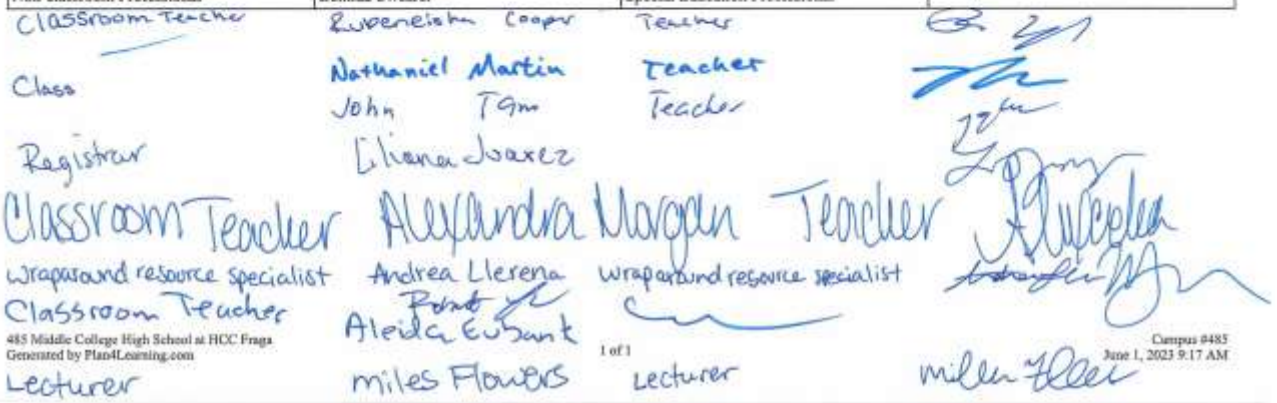 Classroom Teacher Cooper Teacher
Class Nathaniel Martin Teacher
John Tam Teacher
Registrar Iliana Juarez
Classroom Teacher Alexandra Morgan Teacher
wraparound resource specialist Andrea Llerena wraparound resource specialist
Classroom Teacher
Aleida Eubank
485 Middle College High School at HCC Fraga
Generated by Plan4Learning.com
1 of 1
Campus #485
June 1, 2023 9:17 AM
Lecturer miles Flowers Lecturer